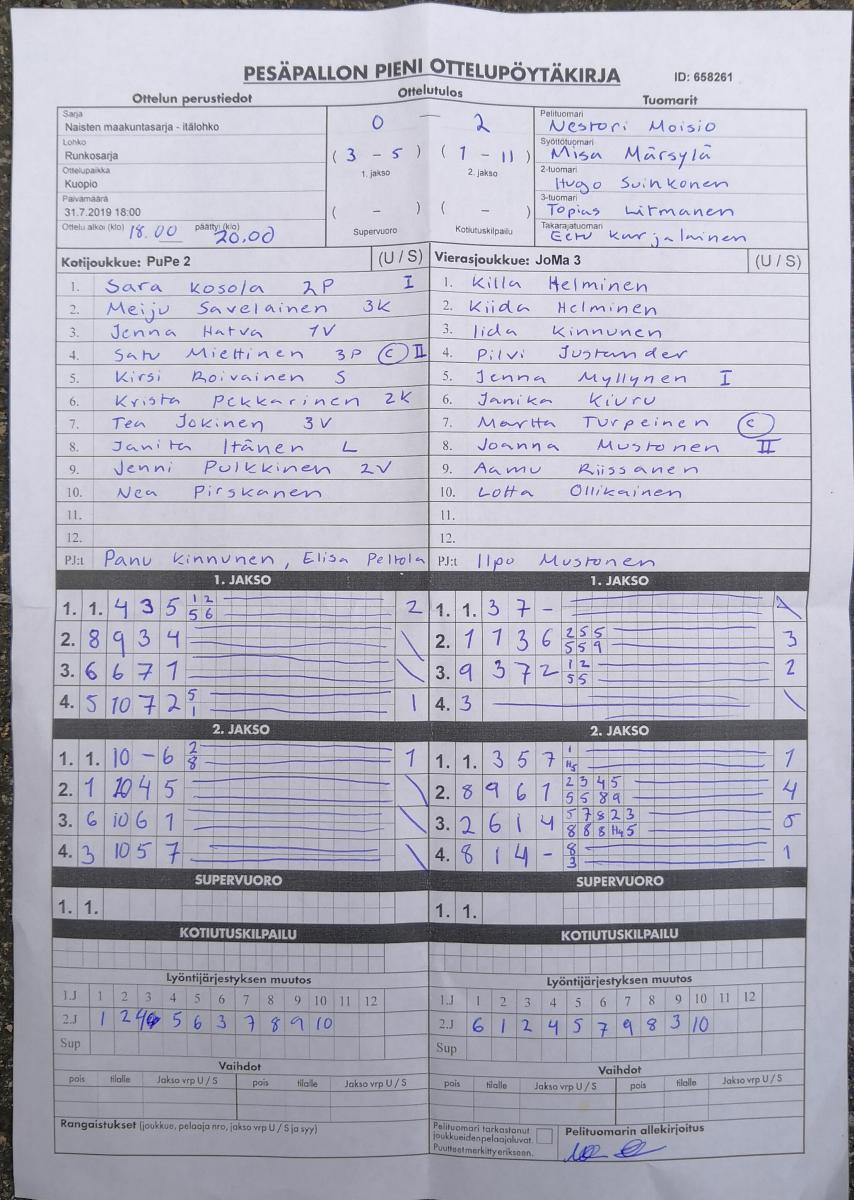 PESÄPALLON PIENI OTTELUPÖYTÄKIRJA ID: 658261
Ottelun perustiedot Ottelutulos Tuomarit
Sarja
Naisten maakuntasarja - itälohko
Lohko
Runkosarja
Ottelupaikka
Kuopio
Päivämäärä
31.7.2019 18:00
Ottelu alkoi (klo) 18.00 päättyi (klo) 20.00
0 — 2
( 3 - 5 ) ( 1 - 11 )
1. jakso 2. jakso
( - ) ( - )
Supervuoro Kotiutuskilpailu
Pelituomari
Nestori Moisio
Syöttötuomari
Misa Märsylä
2-tuomari
Hugo Suihkonen
3-tuomari
Topias Litmanen
Takarajatuomari
Eetu Karjalainen
Kotijoukkue: PuPe 2 (U / S)
1. Sara Kosola 2P I
2. Meiju Savelainen 3K
3. Jenna Hatva 1V
4. Satu Miettinen 3P C II
5. Kirsi Roivainen S
6. Krista Pekkarinen 2K
7. Tea Jokinen 3V
8. Janita Itänen L
9. Jenni Pulkkinen 2V
10. Nea Pirskanen
11.
12.
PJ:t Panu Kinnunen, Elisa Peltola
Vierasjoukkue: JoMa 3 (U / S)
1. Killa Helminen
2. Kiida Helminen
3. Iida Kinnunen
4. Pilvi Justander
5. Jenna Myllynen I
6. Janika Kiuru
7. Martta Turpeinen C
8. Joanna Mustonen II
9. Aamu Riissanen
10. Lotta Ollikainen
11.
12.
PJ:t Ilpo Mustonen
1. JAKSO
1. 1. 4 3 5 1 2 2
5 6
2. 8 9 3 4
3. 6 6 7 1
4. 5 10 7 2 5 1
1
2. JAKSO
1. 1. 10 - 6 2 1
8
2. 1 10 4 5
3. 6 10 6 1
4. 3 10 5 7
SUPERVUORO
1. 1.
KOTIUTUSKILPAILU
1. JAKSO
1. 1. 3 7 -
2. 1 1 3 6 2 5 5 3
5 5 9
3. 9 3 7 2 1 2 2
5 5
4. 3
2. JAKSO
1. 1. 3 5 7 1 1
2. 8 9 6 1 2 3 4 5 4
5 5 8 9
3. 2 6 1 4 5 7 8 2 3 5
8 8 8
4. 8 1 4 - 8 1
3
SUPERVUORO
1. 1.
KOTIUTUSKILPAILU
Lyöntijärjestyksen muutos
1.J 1 2 3 4 5 6 7 8 9 10 11 12
2.J 1 2 4 5 6 3 7 8 9 10
Sup
Vaihdot
pois tilalle Jakso vrp U / S pois tilalle Jakso vrp U / S
Lyöntijärjestyksen muutos
1.J 1 2 3 4 5 6 7 8 9 10 11 12
2.J 6 1 2 4 5 7 9 8 3 10
Sup
Vaihdot
pois tilalle Jakso vrp U / S pois tilalle Jakso vrp U / S
Rangaistukset (joukkue, pelaaja nro, jakso vrp U / S ja syy)
Pelituomari tarkastanut
joukkueiden pelaajaluvat.
Puutteet merkitty erikseen.
Pelituomarin allekirjoitus